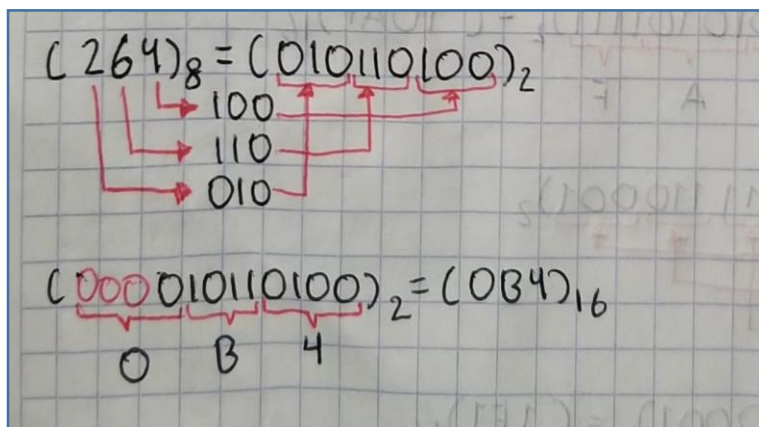 (264)₈ = (010110100)₂
100
110
010
(000010110100)₂ = (0B4)₁₆
0 B 4